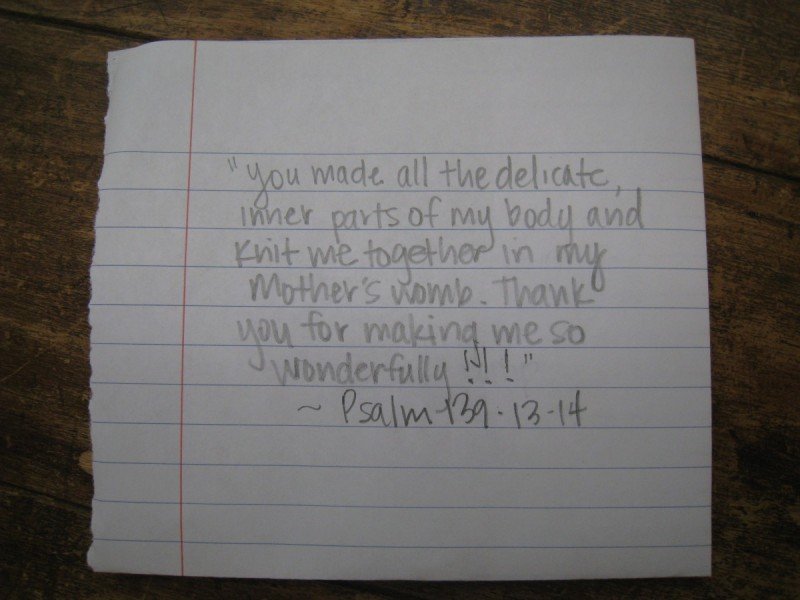 "You made all the delicate,
inner parts of my body and
knit me together in my
Mother's womb. Thank
you for making me so
wonderfully !!!"
~ Psalm 139:13-14